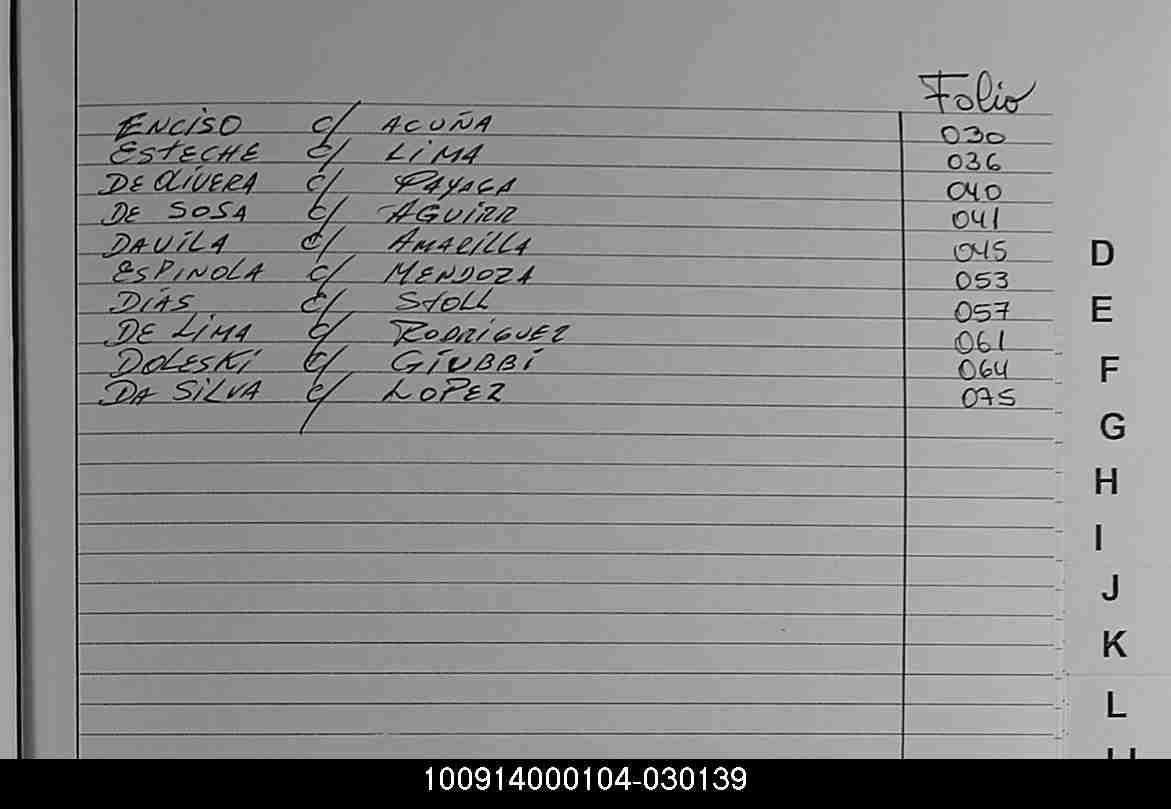 Folio
ENCISO c/ ACUÑA 030
ESTECHE c/ LIMA 036
DE OLIVERA c/ PAYAGA 040
DE SOSA c/ AGUIRR 041
DAVILA c/ AMARILLA 045
ESPINOLA c/ MENDOZA 053
DÍAS c/ STOLL 057
DE LIMA c/ RODRIGUEZ 061
DOLESKI c/ GIUBBI 064
DA SILVA c/ LOPEZ 075
D
E
F
G
H
I
J
K
L
100914000104-030139